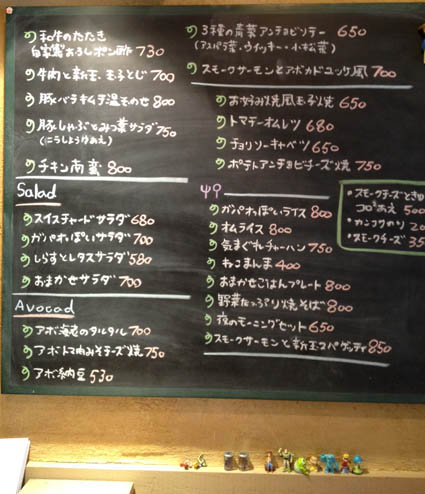 和牛のたたき
自家製おろしポン酢 730
牛肉と新玉、玉子とじ 700
豚バラキムチ温玉のせ 800
豚しゃぶとみつ葉サラダ 750
(にうしょうゆあえ)
チキン南蛮 800
Salad
スイスチャードサラダ 680
ガパオっぽいサラダ 700
しらすとレタスサラダ 580
おまかせサラダ 700
Avocad
アボ海老のタルタル 700
アボトマ肉みそチーズ焼 750
アボ納豆 530
3種の青菜アンチョビソテー 650
(アスパラ菜・ウイッキー・小松菜)
スモークサーモンとアボカドユッケ風 700
お好み焼風玉子焼 650
トマデーオムレツ 680
チョリソーキャベツ 650
ポテトアンチョビチーズ焼 750
ガパオっぽいライス 800
オムライス 800
気まぐれチャーハン 750
ねこまんま 400
おまかせごはんプレート 800
野菜たっぷり焼そば 800
夜のモーニングセット 650
スモークサーモンと新玉スパゲッティ 850
・スモークチーズときゅ
コロコロあえ 500
・カンコクのり 20
・スモークチーズ 35